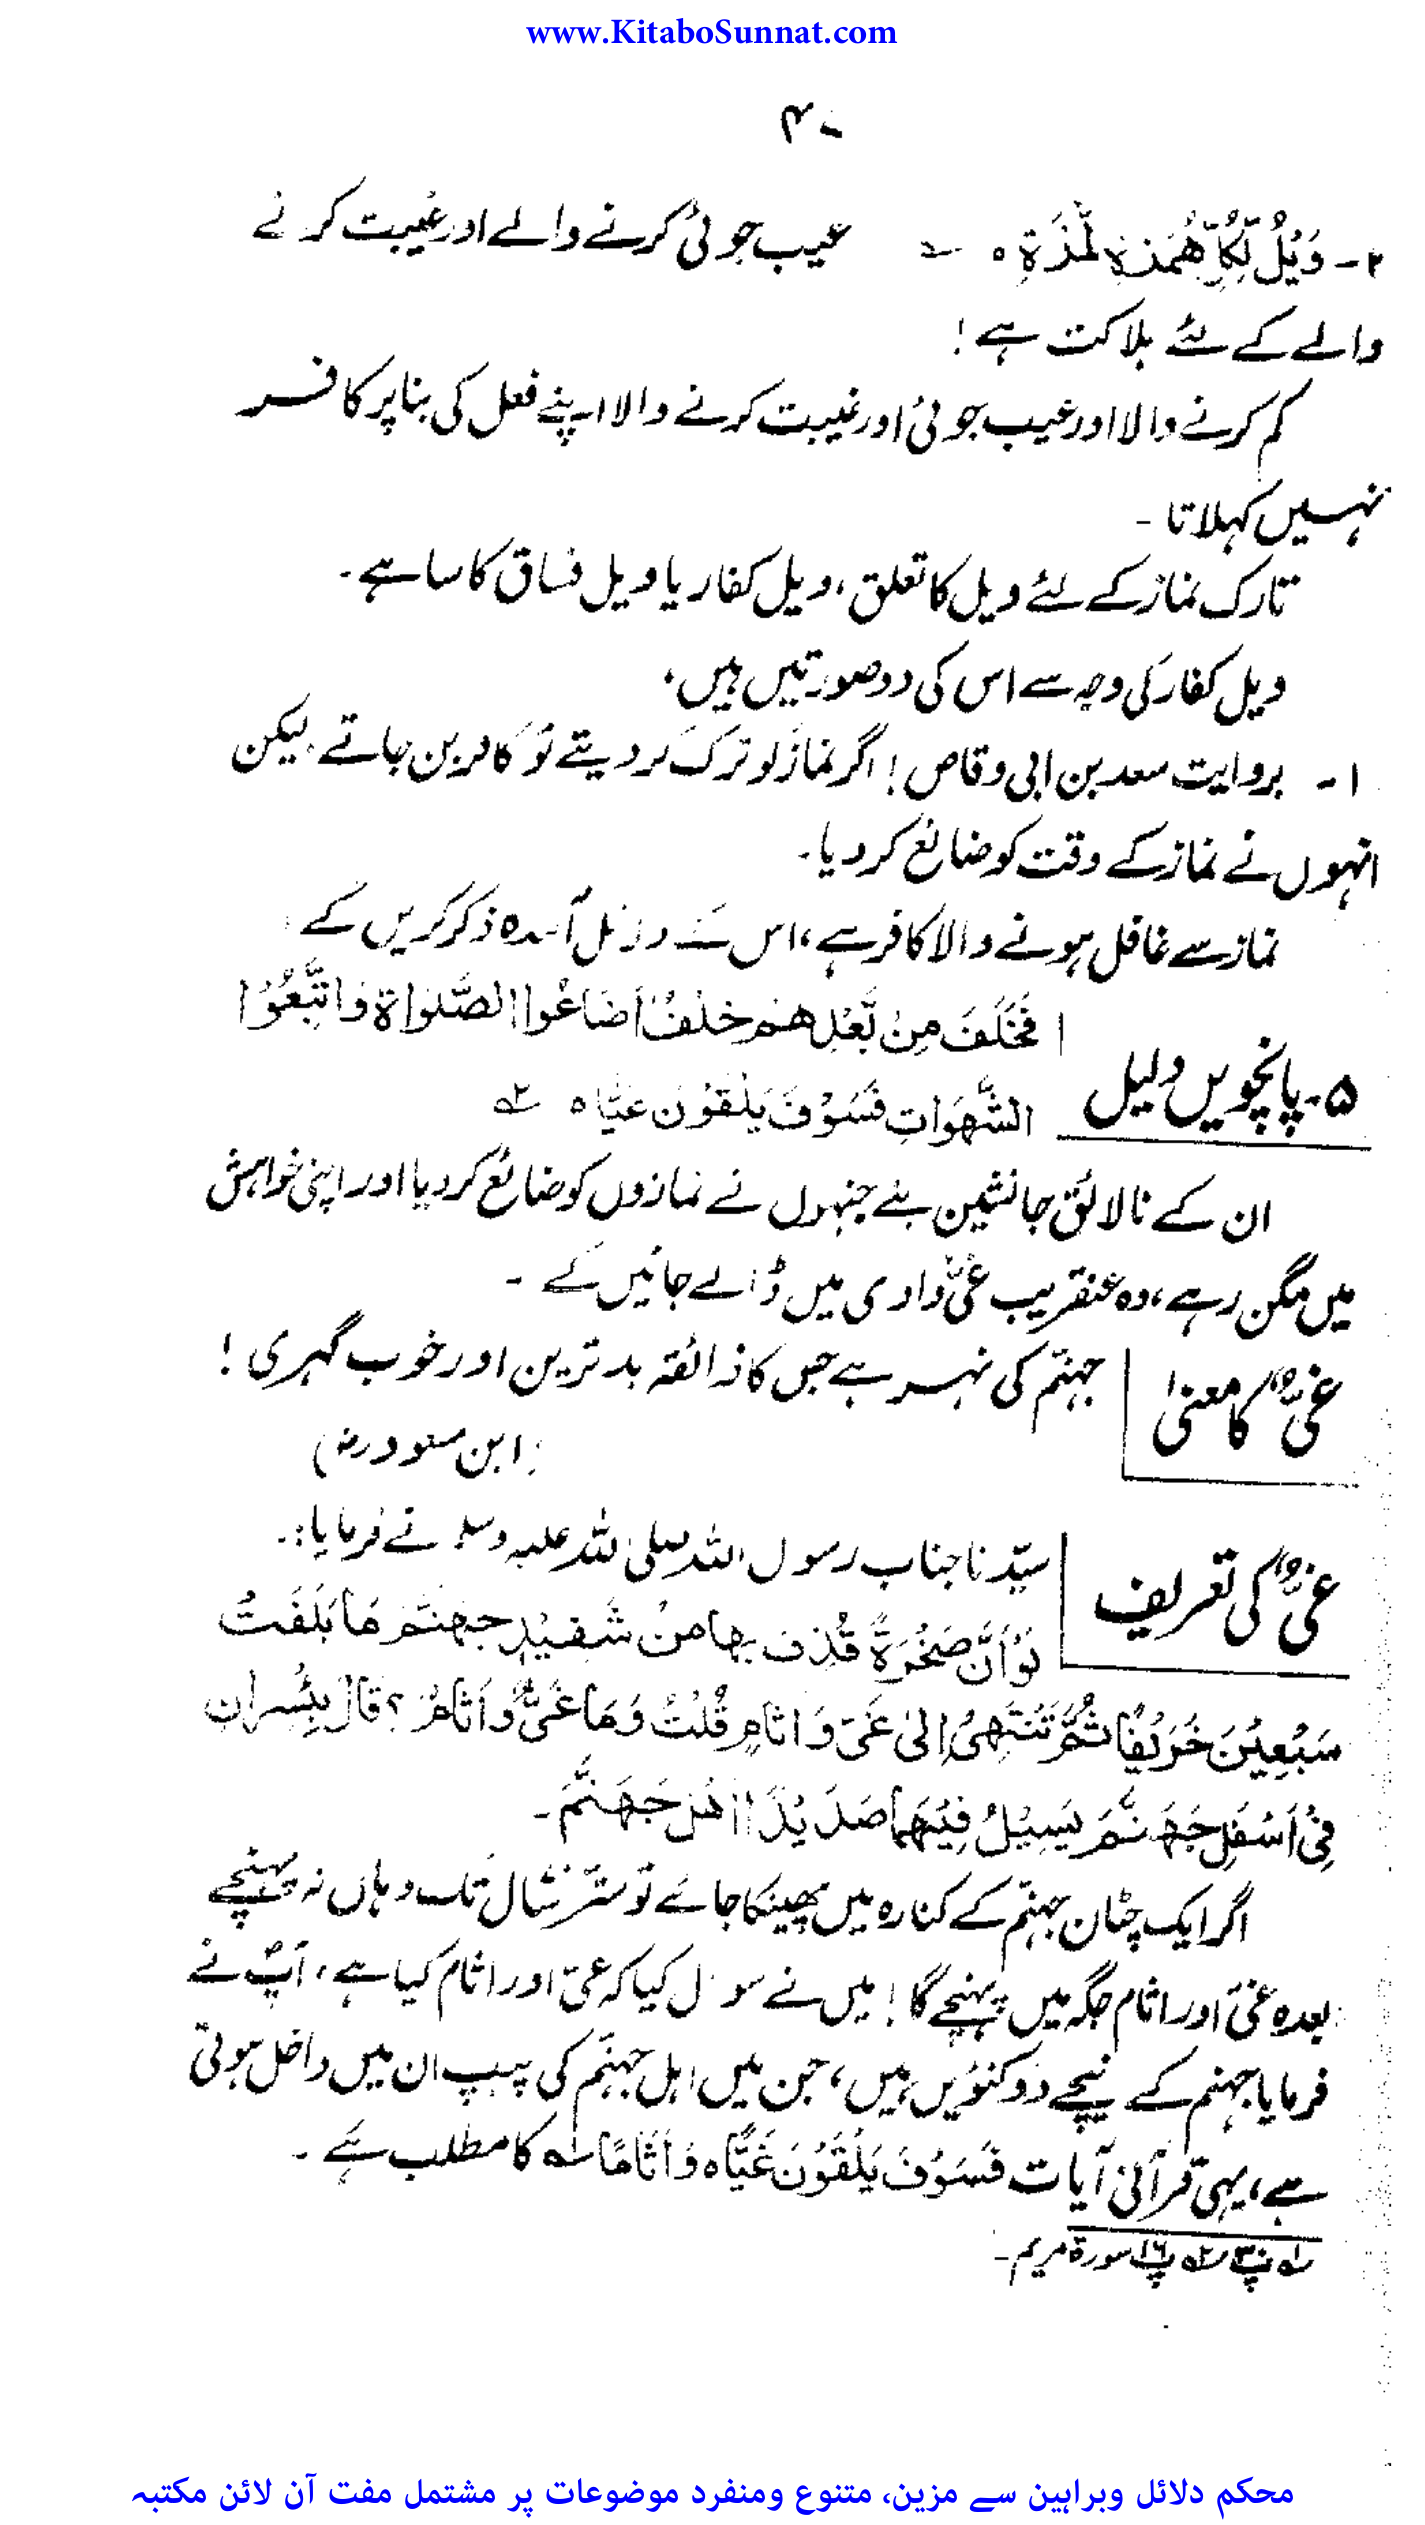 www.KitaboSunnat.com
۴۰
۲- وَيْلٌ لِّكُلِّ هُمَزَةٍ لُّمَزَةٍ ہ ؎ عیب جوئی کرنے والے اور غیبت کرنے
والے کے لئے ہلاکت ہے !
کم کرنے والا اور عیب جوئی اور غیبت کرنے والا اپنے فعل کی بنا پر کافر
نہیں کہلاتا -
تارک نماز کے لئے ویل کا تعلق، ویل کفار یا ویل فساق کا سا ہے۔
ویل کفار کی وجہ سے اس کی دو صورتیں ہیں،
۱- بروایت سعد بن ابی وقاص ! اگر نماز کو ترک کر دیتے تو کافر بن جاتے، لیکن
انہوں نے نماز کے وقت کو ضائع کر دیا۔
نماز سے غافل ہونے والا کافر ہے، اس کے دلائل آئندہ ذکر کریں گے
۵- پانچویں دلیل
فَخَلَفَ مِنْ بَّعْدِهِمْ خَلْفٌ اَضَاعُوا الصَّلٰوةَ وَاتَّبَعُوا
الشَّهَوَاتِ فَسَوْفَ يَلْقَوْنَ غَيًّا ہ ؎۲
ان کے نالائق جانشین بنے جنہوں نے نمازوں کو ضائع کر دیا اور اپنی خواہش
میں مگن رہے، وہ عنقریب غَیٌّ وادی میں ڈالے جائیں گے -
غَیٌّ کا معنیٰ
جہنّم کی نہر ہے جس کا ذائقہ بدترین اور خوب گہری !
(ابن مسعود رض)
غَیٌّ کی تعریف
سیّدنا جناب رسول اللہ صلی اللہ علیہ وسلم نے فرمایا:۔
لَوْ اَنَّ صَخْرَةً قُذِفَ بِهَا مِنْ شَفِيْرِ جَهَنَّمَ مَا بَلَغَتْ
سَبْعِيْنَ خَرِيْفًا ثُمَّ تَنْتَهِيْ اِلٰى غَىٍّ وَاَثَامٍ قُلْتُ وَمَا غَىٌّ وَاَثَامٌ ؟ قَالَ بِئْسَرَانِ
فِيْ اَسْفَلِ جَهَنَّمَ يَسِيْلُ فِيْهِمَا صَدِيْدُ اَهْلِ جَهَنَّمَ -
اگر ایک چٹان جہنّم کے کنارہ میں پھینکا جائے تو ستّر سال تک وہاں نہ پہنچے
بعدہ غیّ اور اثام جگہ میں پہنچے گا ! میں نے سوال کیا کہ غیّ اور اثام کیا ہے، آپؐ نے
فرمایا جہنم کے نیچے دو کنوئیں ہیں، جن میں اہل جہنّم کی پیپ ان میں داخل ہوتی
ہے، یہی قرآنی آیات فَسَوْفَ يَلْقَوْنَ غَيًّا ہ وَاَثَامًا ؎ کا مطلب ہے -
؎۱ پ۳۰ ؎۲ پ۱۶ سورۃ مریم -
محکم دلائل وبراہین سے مزین، متنوع ومنفرد موضوعات پر مشتمل مفت آن لائن مکتبہ